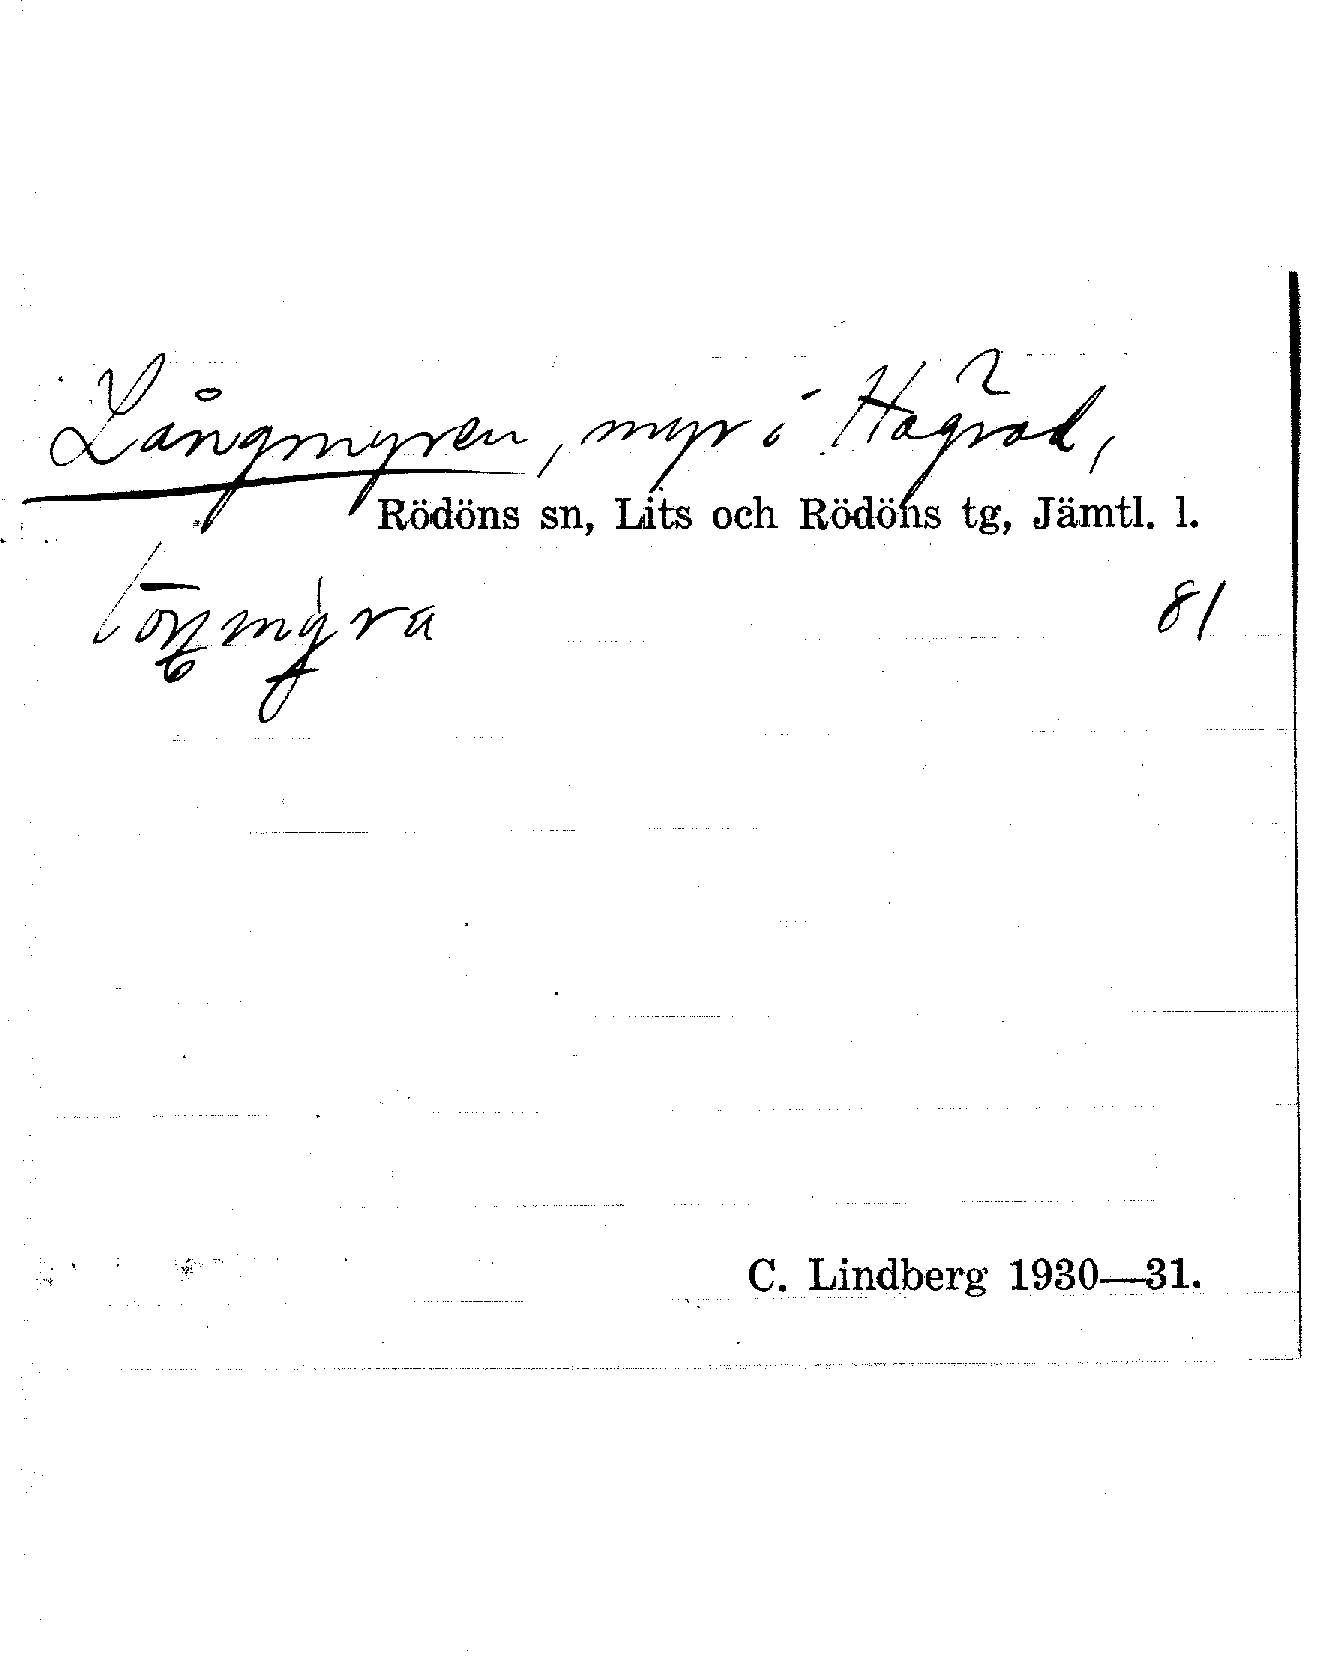 Långmyren, myr i Hägrad,
Rödöns sn, Lits och Rödöns tg, Jämtl. l.
81
C. Lindberg 1930—31.